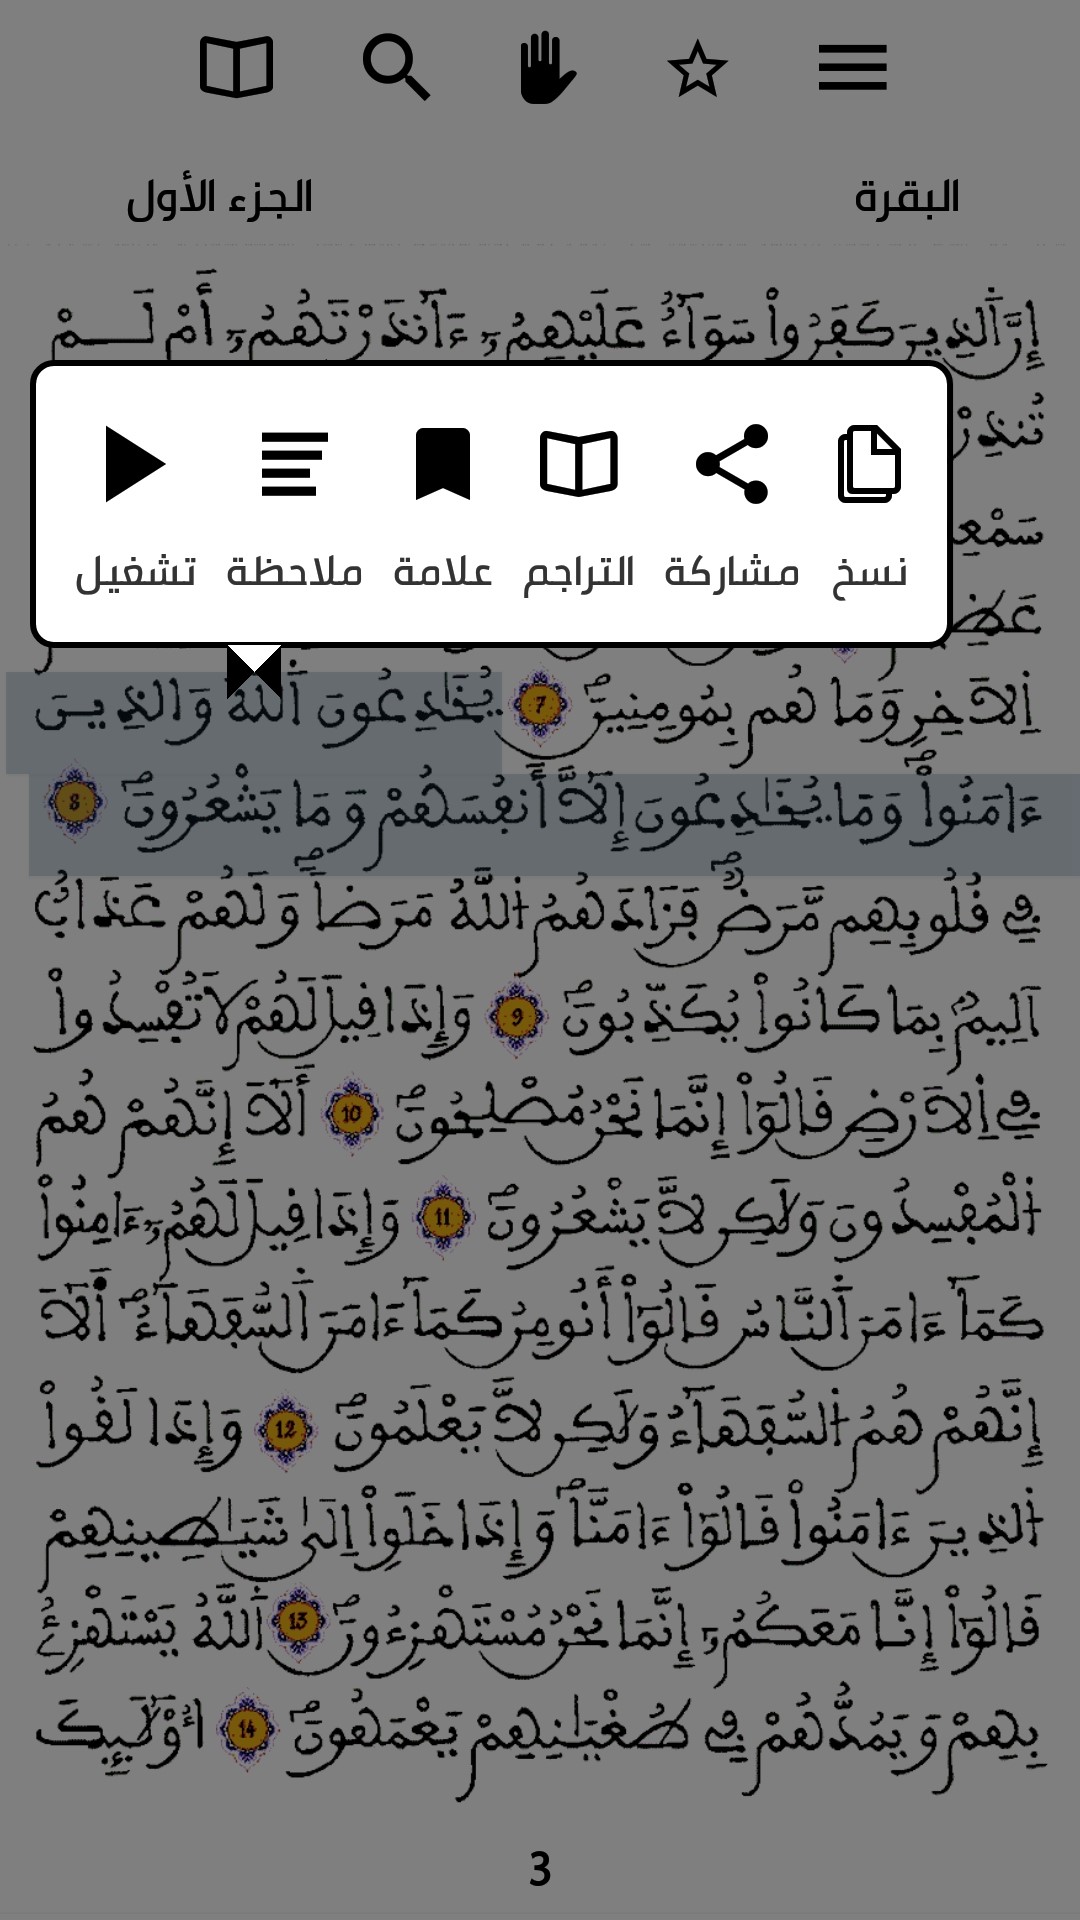 البقرة
الجزء الأول
إِنَّ اَ۬لذِينَ كَفَرُواْ سَوَآءٌ عَلَيْهِمُۥٓ ءَآنذَرْتَهُمُۥٓ أَمْ لَمْ
تُنذِرْ
سَمْعِ
عَظِ
نسخ
مشاركة
التراجم
علامة
ملاحظة
تشغيل
اِ۬لَاخِرِ وَمَا هُم بِمُومِنِينَۖ 7 يُخَٰدِعُونَ اَ۬للَّهَ وَالذِينَ
ءَامَنُواْۖ وَمَا يُخَٰدِعُونَ إِلَّآ أَنفُسَهُمْ وَمَا يَشْعُرُونَۖ 8
فِے قُلُوبِهِم مَّرَضٞۖ فَزَادَهُمُ اُ۬للَّهُ مَرَضاٗۖ وَلَهُمْ عَذَابٌ
اَلِيمُۢ بِمَا كَانُواْ يُكَذِّبُونَۖ 9 وَإِذَا قِيلَ لَهُمْ لَا تُفْسِدُواْ
فِے اِ۬لَارْضِ قَالُوٓاْ إِنَّمَا نَحْنُ مُصْلِحُونَۖ 10 أَلَآ إِنَّهُمْ هُمُ
اُ۬لْمُفْسِدُونَ وَلَٰكِن لَّا يَشْعُرُونَۖ 11 وَإِذَا قِيلَ لَهُمُۥٓ ءَامِنُواْ
كَمَآ ءَامَنَ اَ۬لنَّاسُ قَالُوٓاْ أَنُومِنُ كَمَآ ءَامَنَ اَ۬لسُّفَهَآءُۖ اَ۬لَآ
إِنَّهُمْ هُمُ اُ۬لسُّفَهَآءُ وَلَٰكِن لَّا يَعْلَمُونَۖ 12 وَإِذَا لَقُواْ
اُ۬لذِينَ ءَامَنُواْ قَالُوٓاْ ءَامَنَّاۖ وَإِذَا خَلَوِاْ اِلَىٰ شَيَٰطِينِهِمْ
قَالُوٓاْ إِنَّا مَعَكُمُۥٓ إِنَّمَا نَحْنُ مُسْتَهْزِءُونَۖ 13 اَ۬للَّهُ يَسْتَهْزِۓُ
بِهِمْ وَيَمُدُّهُمْ فِے طُغْيَٰنِهِمْ يَعْمَهُونَۖ 14 أُوْلَٰٓئِكَ
3